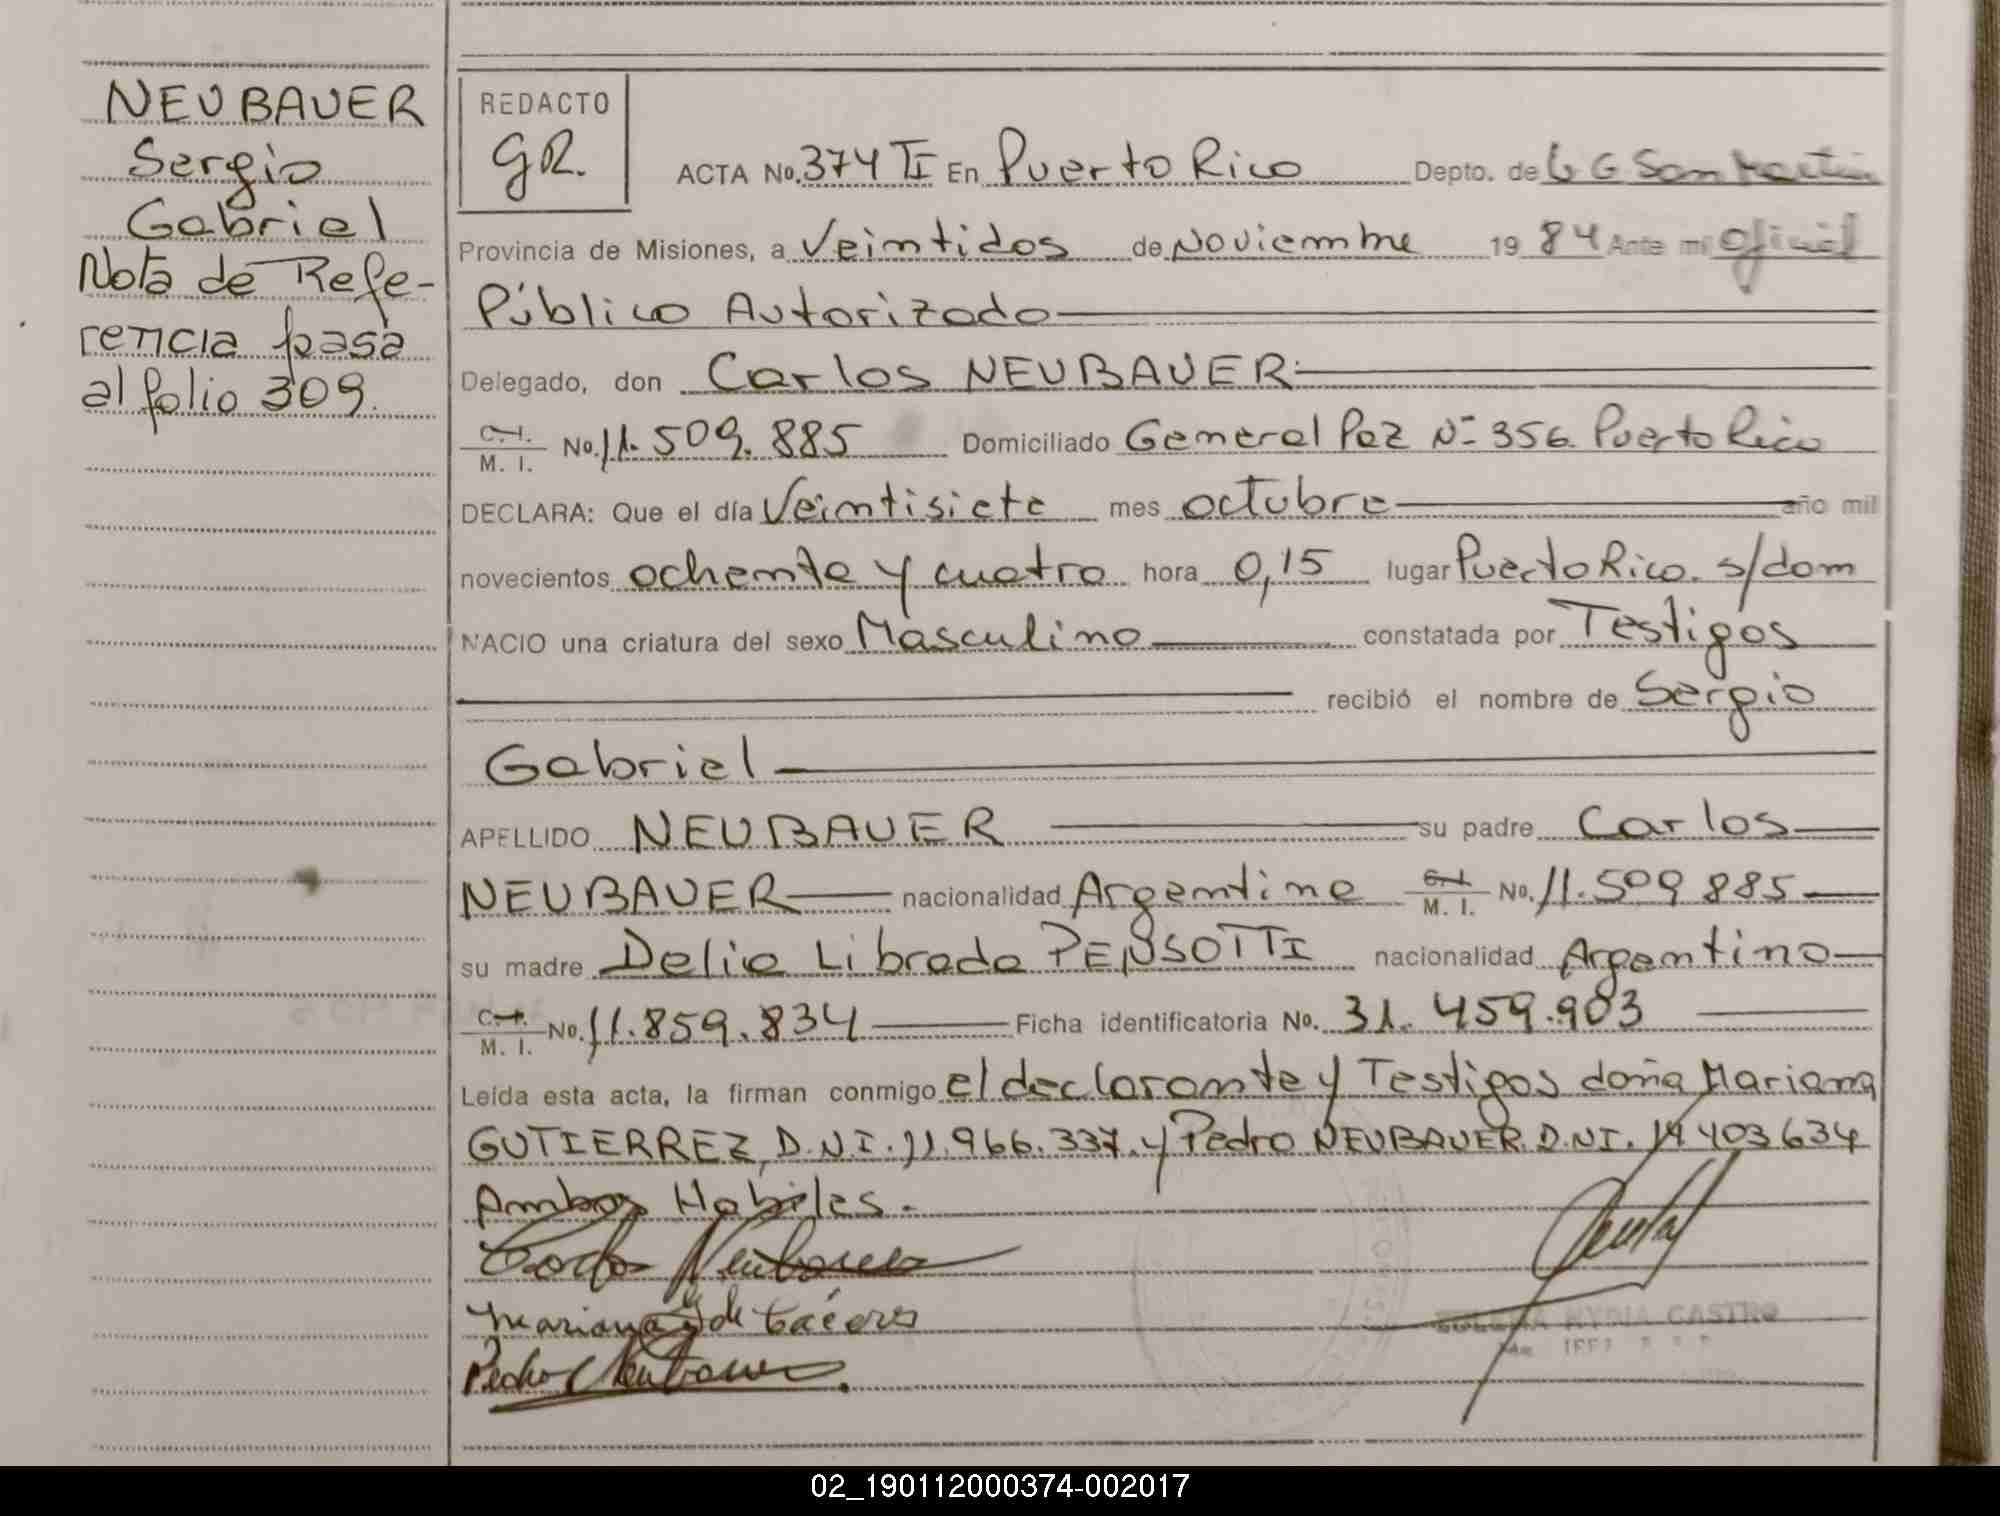 NEUBAUER
Sergio
Gabriel
Nota de Refe-
rencia pasa
al folio 309.
REDACTO
GR.
ACTA No. 374 TI En Puerto Rico Depto. de L G San Martin
Provincia de Misiones, a Veintidos de Noviembre 19 84 Ante mi Oficial
Público Autorizado
Delegado, don Carlos NEUBAUER
C. I.
M. I. No. 11.509.885 Domiciliado General Paz Nº 356. Puerto Rico
DECLARA: Que el día Veintisiete mes octubre año mil
novecientos ochenta y cuatro hora 0,15 lugar Puerto Rico. s/dom
NACIO una criatura del sexo Masculino constatada por Testigos
recibió el nombre de Sergio
Gabriel
APELLIDO NEUBAUER su padre Carlos
NEUBAUER nacionalidad Argentina C. I. M. I. No. 11.509 885
su madre Delia Librada PENSOTTI nacionalidad Argentina
C. I.
M. I. No. 11.859.834 Ficha identificatoria No. 31.459.903
Leída esta acta, la firman conmigo el declarante y Testigos doña Mariana
GUTIERREZ, D.N.I. 11.966.337. y Pedro NEUBAUER. D.N.I. 14 403 634
Ambos Habiles.
Carlos Neubauer
Mariana G de Cáceres
Pedro Neubauer
NYDIA CASTRO
02_190112000374-002017